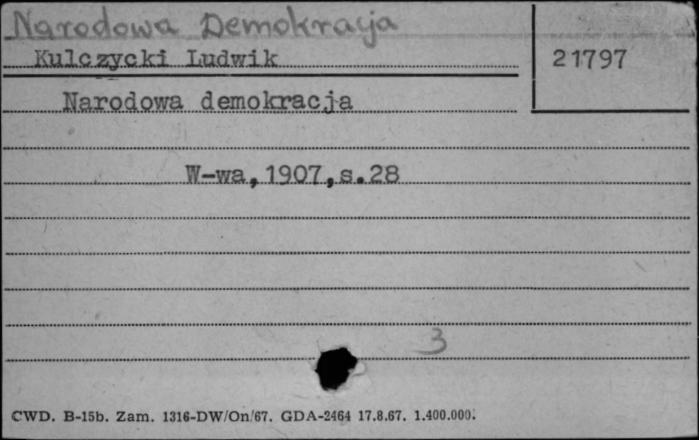 Narodowa Demokracja
Kulczycki Ludwik
21797
Narodowa demokracja
W-wa,1907,s.28
3
CWD. B-15b. Zam. 1316-DW/On/67. GDA-2464 17.8.67. 1.400.000.